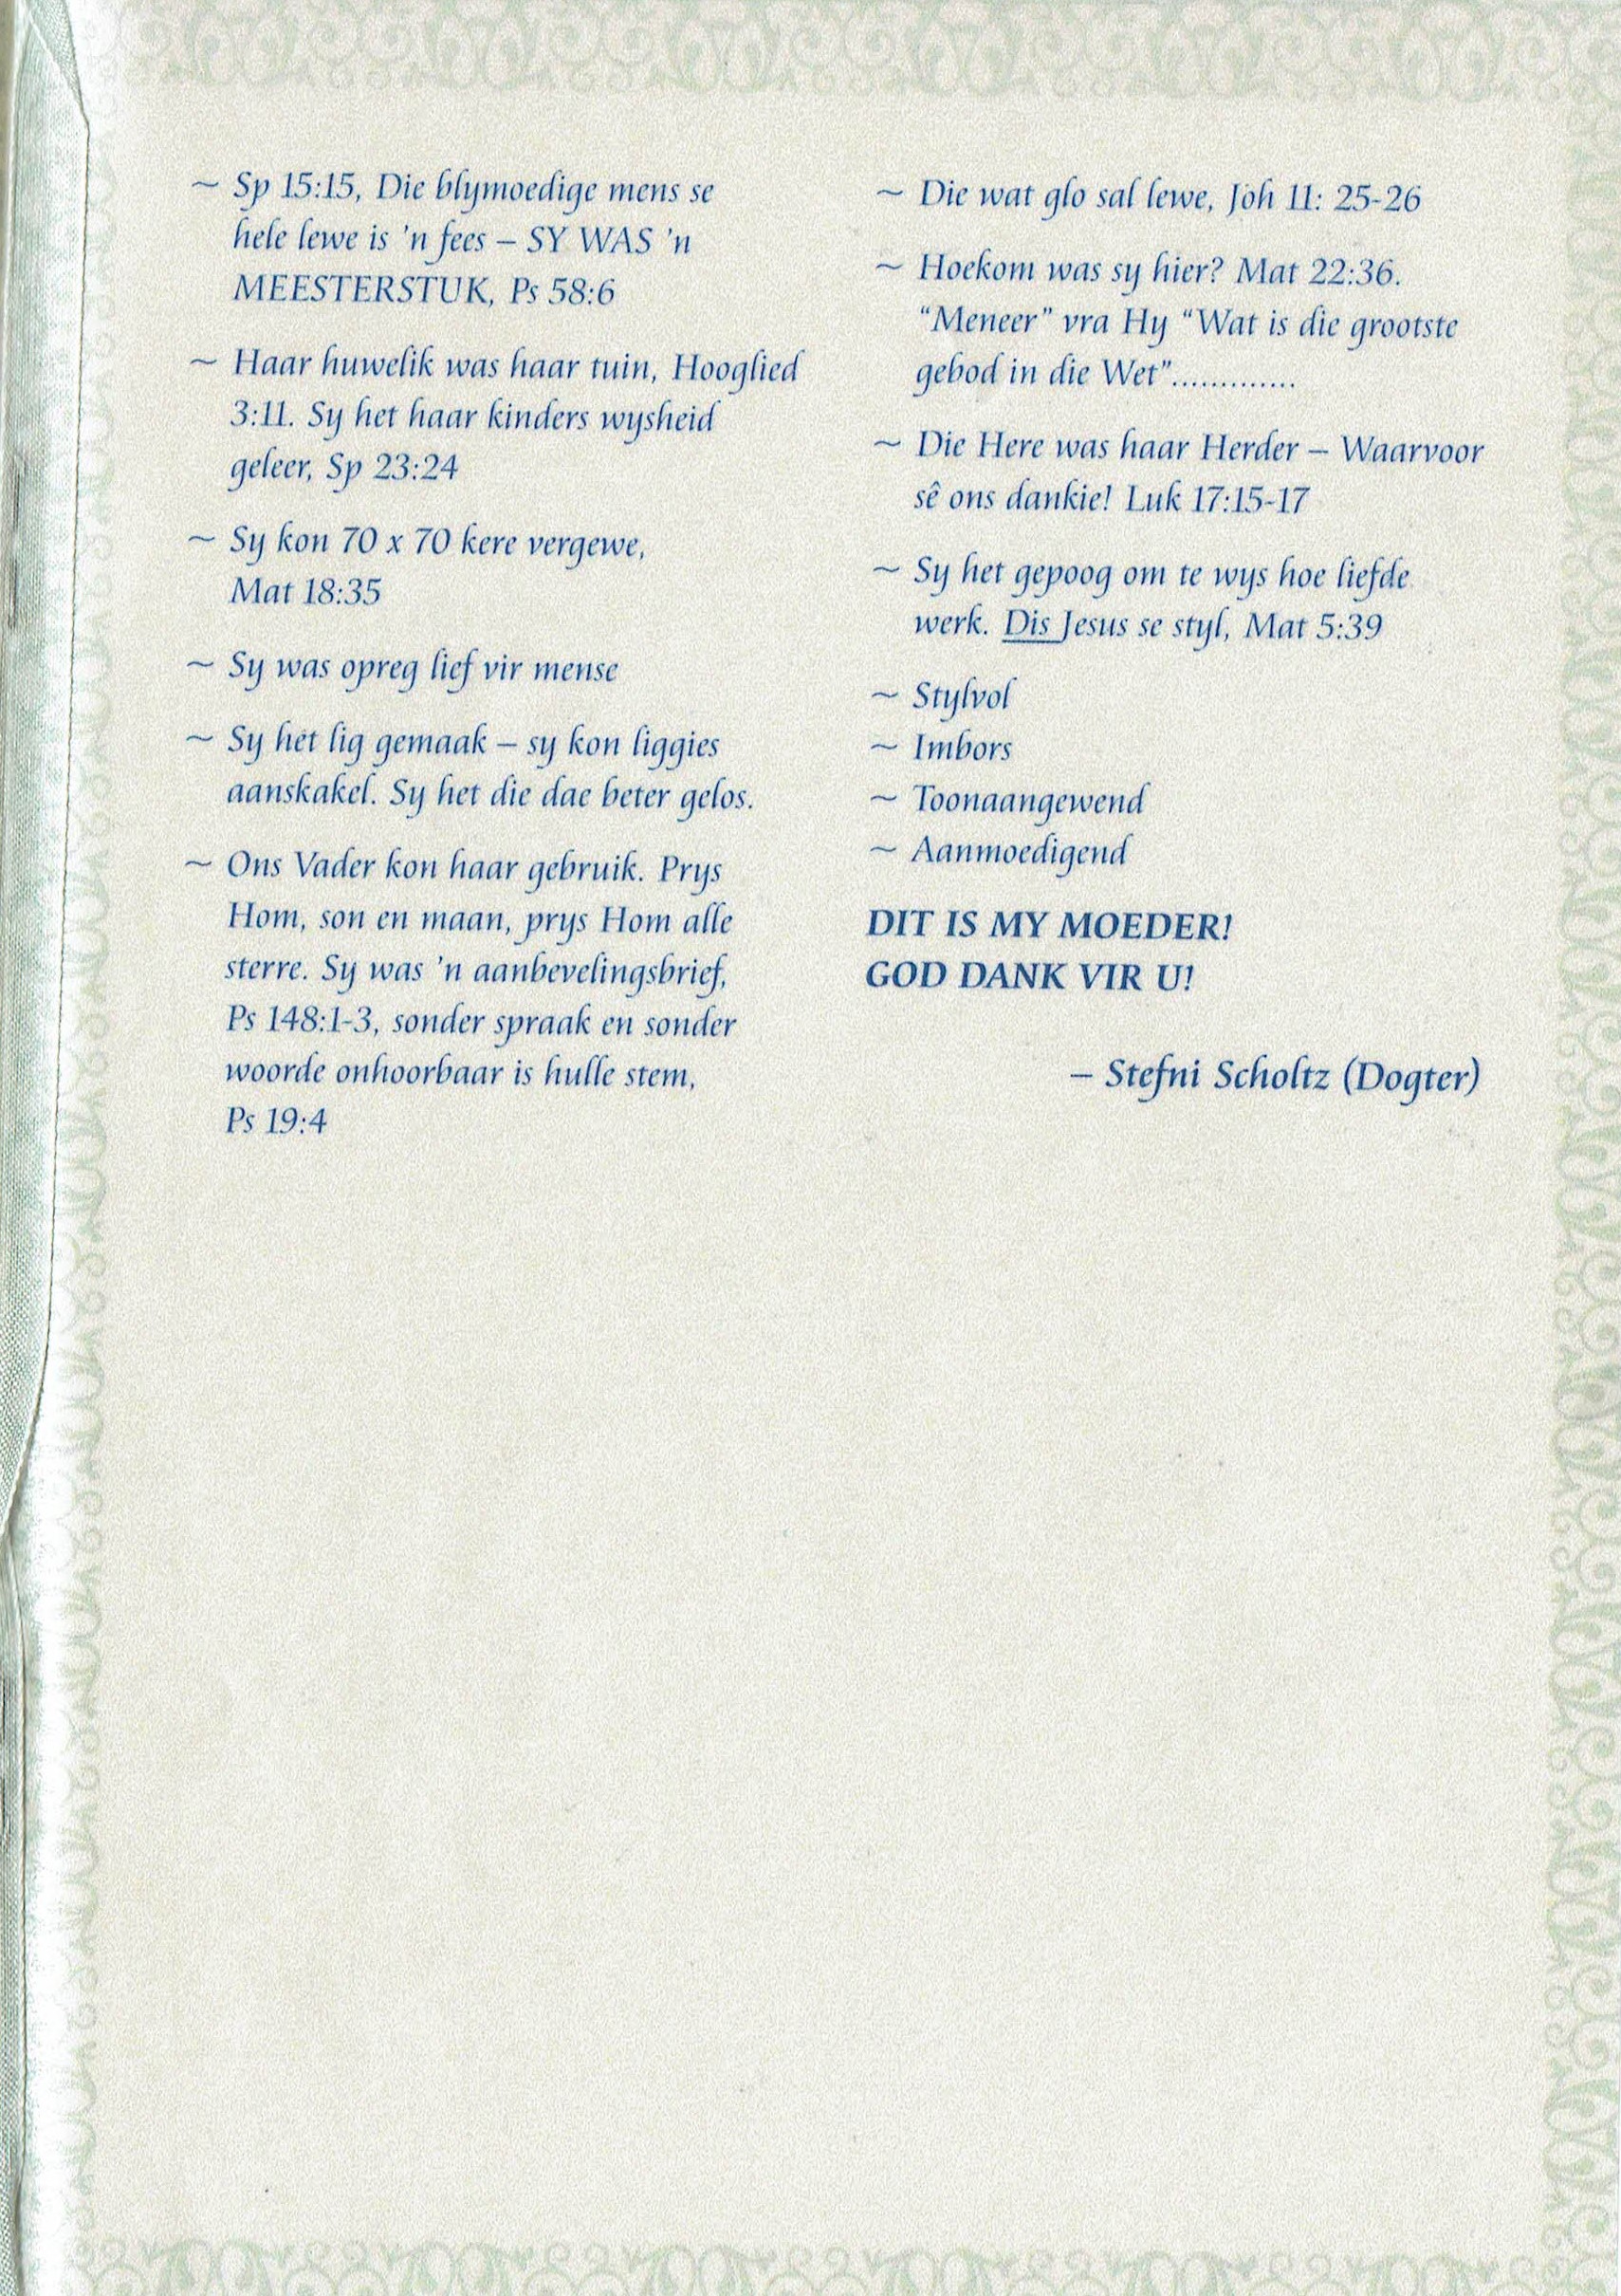 ~ Sp 15:15, Die blymoedige mens se
hele lewe is 'n fees – SY WAS 'n
MEESTERSTUK, Ps 58:6
~ Haar huwelik was haar tuin, Hooglied
3:11. Sy het haar kinders wysheid
geleer, Sp 23:24
~ Sy kon 70 x 70 kere vergewe,
Mat 18:35
~ Sy was opreg lief vir mense
~ Sy het lig gemaak – sy kon liggies
aanskakel. Sy het die dae beter gelos.
~ Ons Vader kon haar gebruik. Prys
Hom, son en maan, prys Hom alle
sterre. Sy was 'n aanbevelingsbrief,
Ps 148:1-3, sonder spraak en sonder
woorde onhoorbaar is hulle stem,
Ps 19:4
~ Die wat glo sal lewe, Joh 11: 25-26
~ Hoekom was sy hier? Mat 22:36.
“Meneer” vra Hy “Wat is die grootste
gebod in die Wet”.............
~ Die Here was haar Herder – Waarvoor
sê ons dankie! Luk 17:15-17
~ Sy het gepoog om te wys hoe liefde
werk. Dis Jesus se styl, Mat 5:39
~ Stylvol
~ Imbors
~ Toonaangewend
~ Aanmoedigend
DIT IS MY MOEDER!
GOD DANK VIR U!
– Stefni Scholtz (Dogter)